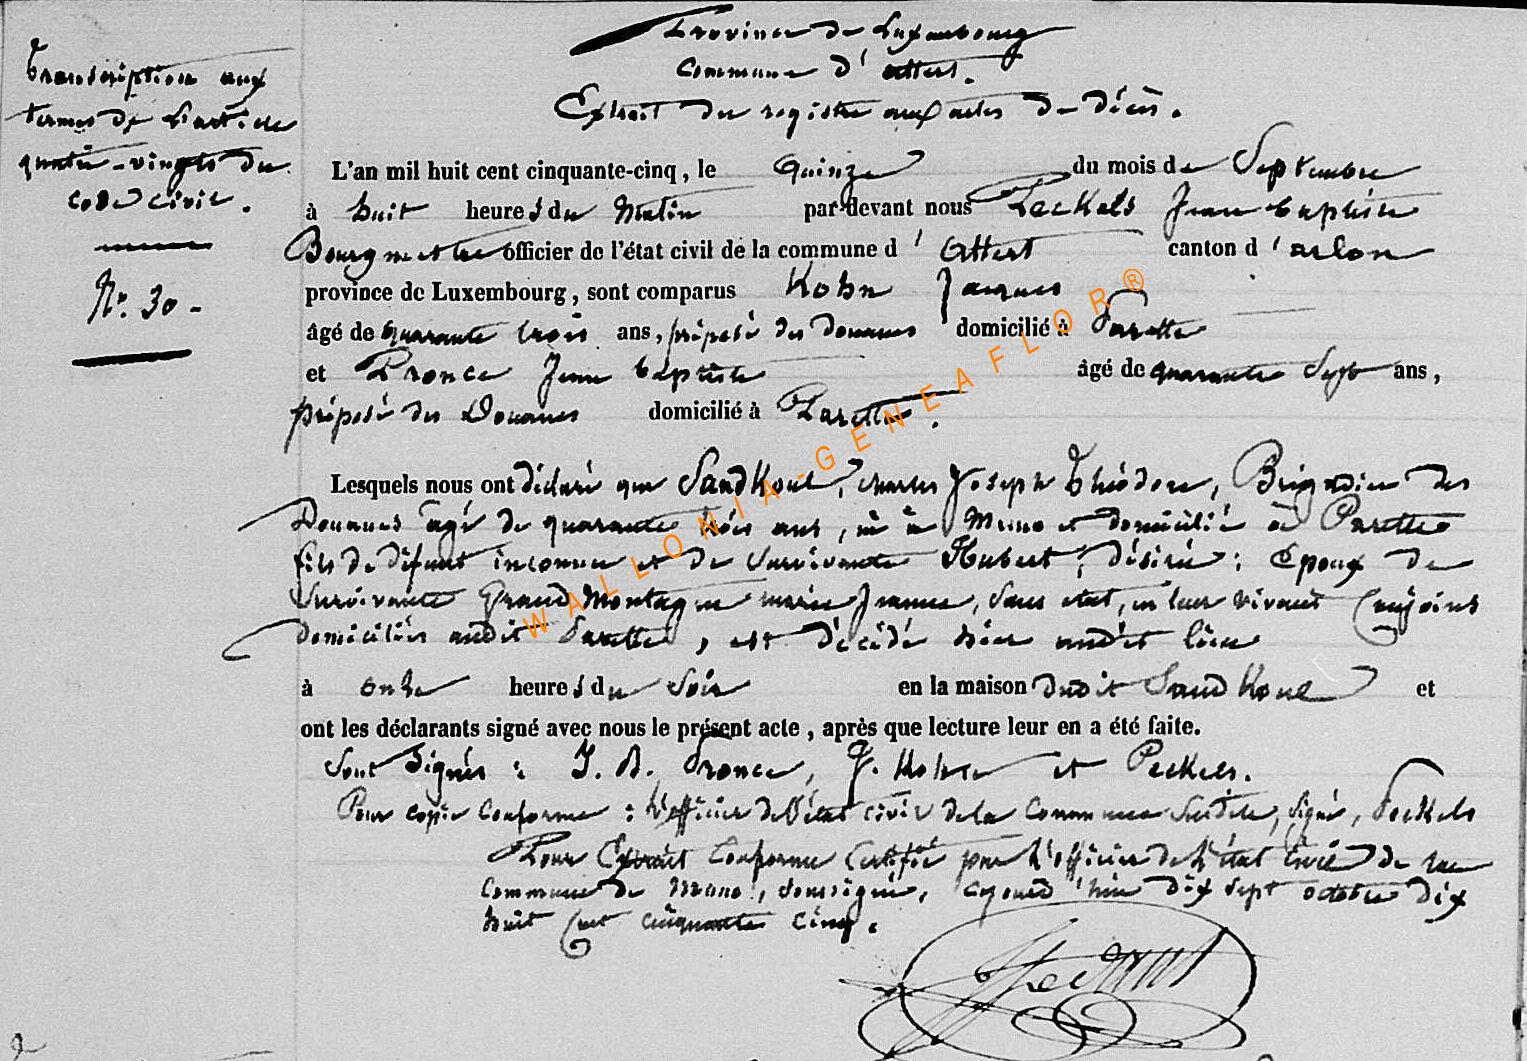 Transcription aux
termes de l'article
quatre-vingts du
code civil.
N° 30 -
Province de Luxembourg
Commune d'Attert.
Extrait du registre aux actes de décès.
L'an mil huit cent cinquante-cinq, le quinze du mois de Septembre
à huit heures du matin par-devant nous Peckels Jean baptiste
Bourgmestre officier de l'état civil de la commune d'Attert canton d'arlon
province de Luxembourg, sont comparus Kohn Jacques
âgé de quarante trois ans, préposé des douanes domicilié à Parette
et Pronce Jean baptiste âgé de quarante sept ans,
préposé des Douanes domicilié à Parette.
Lesquels nous ont déclaré que Sandkoul, charles Joseph Théodore, Brigadier des
Douanes agé de quarante trois ans, né à Meeno et domicilié à Parette
fils de défunt inconnu et de survivante Hubert, désirée; époux de
survivante Grand Montagne marie Jeanne, sans état, en leur vivant conjoins
domiciliés audit Parette, est décédé hier audit lieu
à onze heures du soir en la maison dudit Sandkoul et
ont les déclarants signé avec nous le présent acte, après que lecture leur en a été faite.
Sont signés: J. B. Pronce, J. Kohn et Peckels.
Pour copie conforme: L'officier de l'état civil de la Commune susdite, signé, Peckels
Pour Extrait Conforme Certifié par l'officier de l'état Civil de la
Commune de soussigné, aujourd'hui dix sept octobre dix
huit cent cinquante cinq.
WALLONIA-GENEAFLOR®